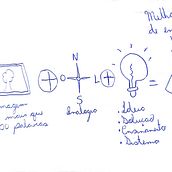 Melho
de en
N
O L
S
magem
mais que
00 palavras
Analogia
• Ideia
• Solução
• Ensinamento
• Sistema